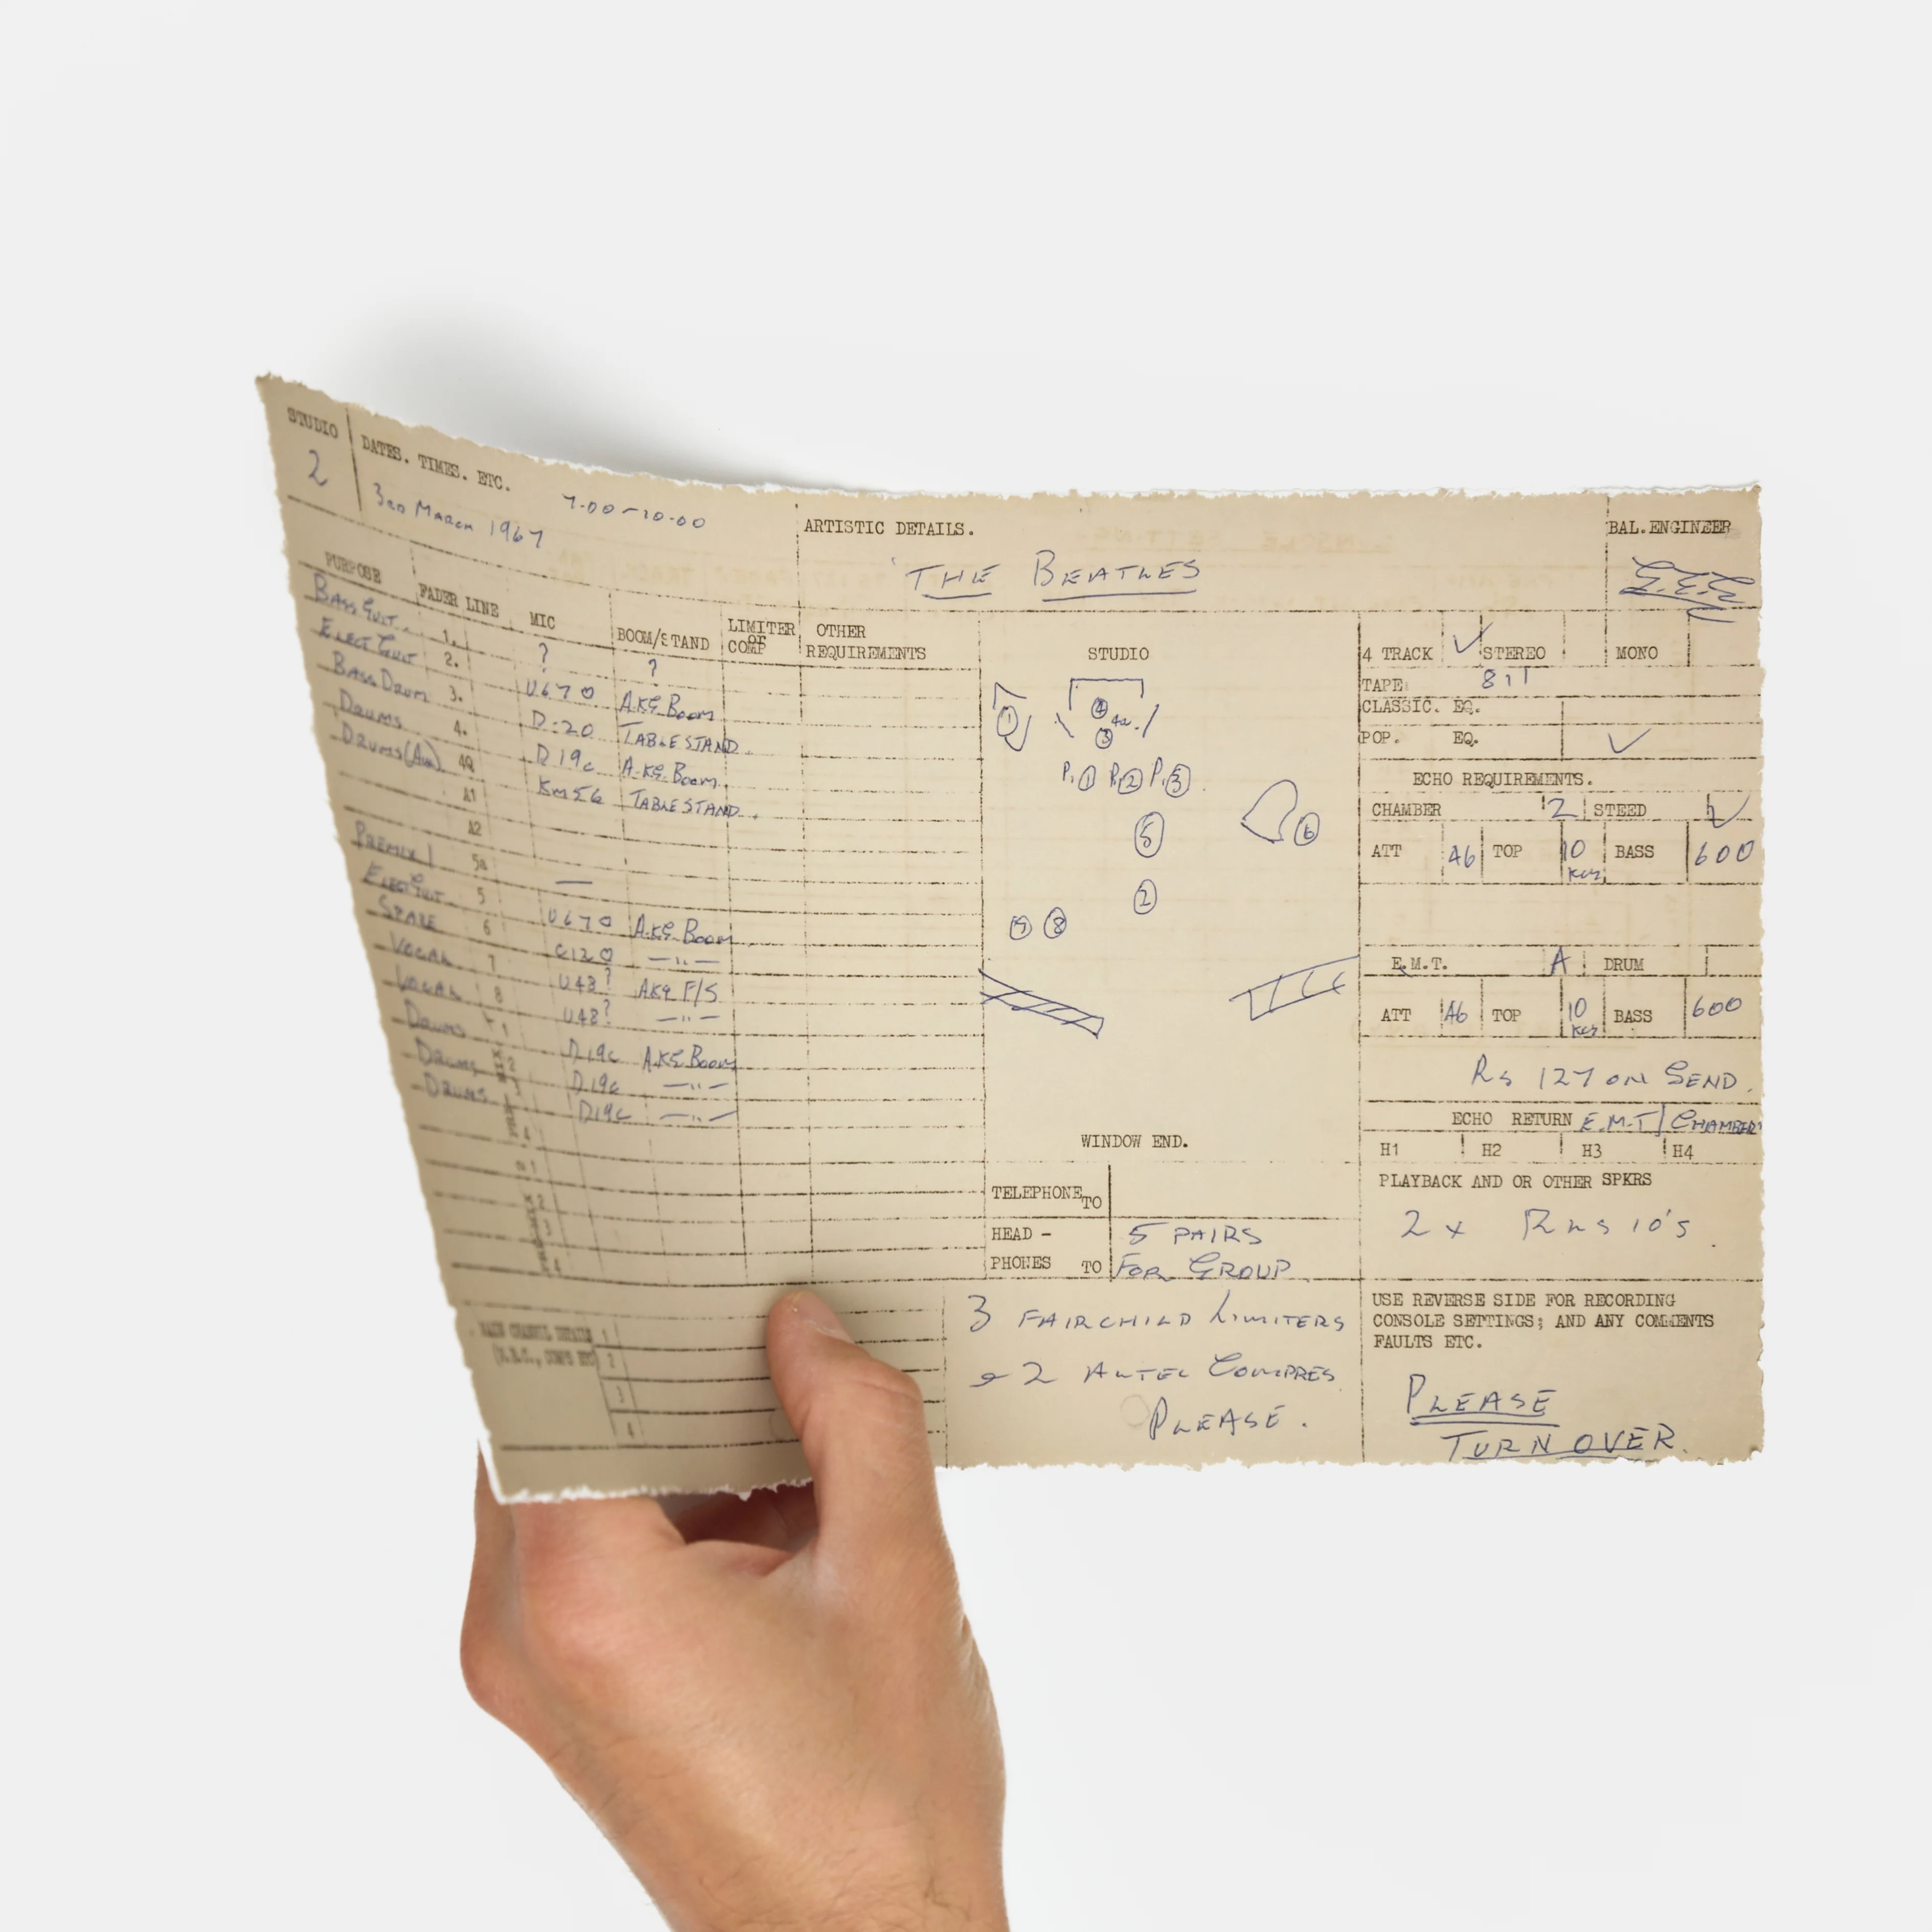 STUDIO
2
DATES. TIMES. ETC.
3RD MARCH 1967 7.00-10.00
ARTISTIC DETAILS.
THE BEATLES
BAL. ENGINEER
G.E.E
PURPOSE FADER LINE MIC BOOM/STAND LIMITER or COMP OTHER REQUIREMENTS
BASS GUIT. 1. ? ?
ELECT GUIT 2. U.67 0 A.K.G. BOOM
BASS DRUM 3. D.20 TABLE STAND.
DRUMS 4. D19c A.K.G. BOOM.
DRUMS 4a KM56 TABLE STAND.
A1
A2
PREMIX 1 5a —
ELECT GUIT 5 U67 0 A.K.G. BOOM
SPARE 6 C12 0 —"—
VOCAL 7 U48? AKG F/S
VOCAL 8 U48? —"—
DRUMS 1 D19c A.K.G. BOOM
DRUMS 2 D.19c —"—
DRUMS D19c —"—
MAIN CHANNEL DETAILS 1
2
3
4
STUDIO
1
4
4a.
3
P.1 P.2 P.3
5
6
2
7 8
WINDOW END.
TELEPHONE TO
HEAD-
PHONES TO
5 PAIRS
FOR GROUP
3 FAIRCHILD LIMITERS
& 2 ALTEC COMPRES
PLEASE.
4 TRACK ✓ STEREO MONO
TAPE 811
CLASSIC. EQ.
POP. EQ. ✓
ECHO REQUIREMENTS.
CHAMBER 2 STEED ✓
ATT 46 TOP 10 Kcs BASS 600
E.M.T. A DRUM
ATT 46 TOP 10 Kcs BASS 600
RS 127 ON SEND.
ECHO RETURN E.M.T/CHAMBER
H1 H2 H3 H4
PLAYBACK AND OR OTHER SPKRS
2 x RLS 10's.
USE REVERSE SIDE FOR RECORDING
CONSOLE SETTINGS; AND ANY COMMENTS
FAULTS ETC.
PLEASE
TURN OVER.